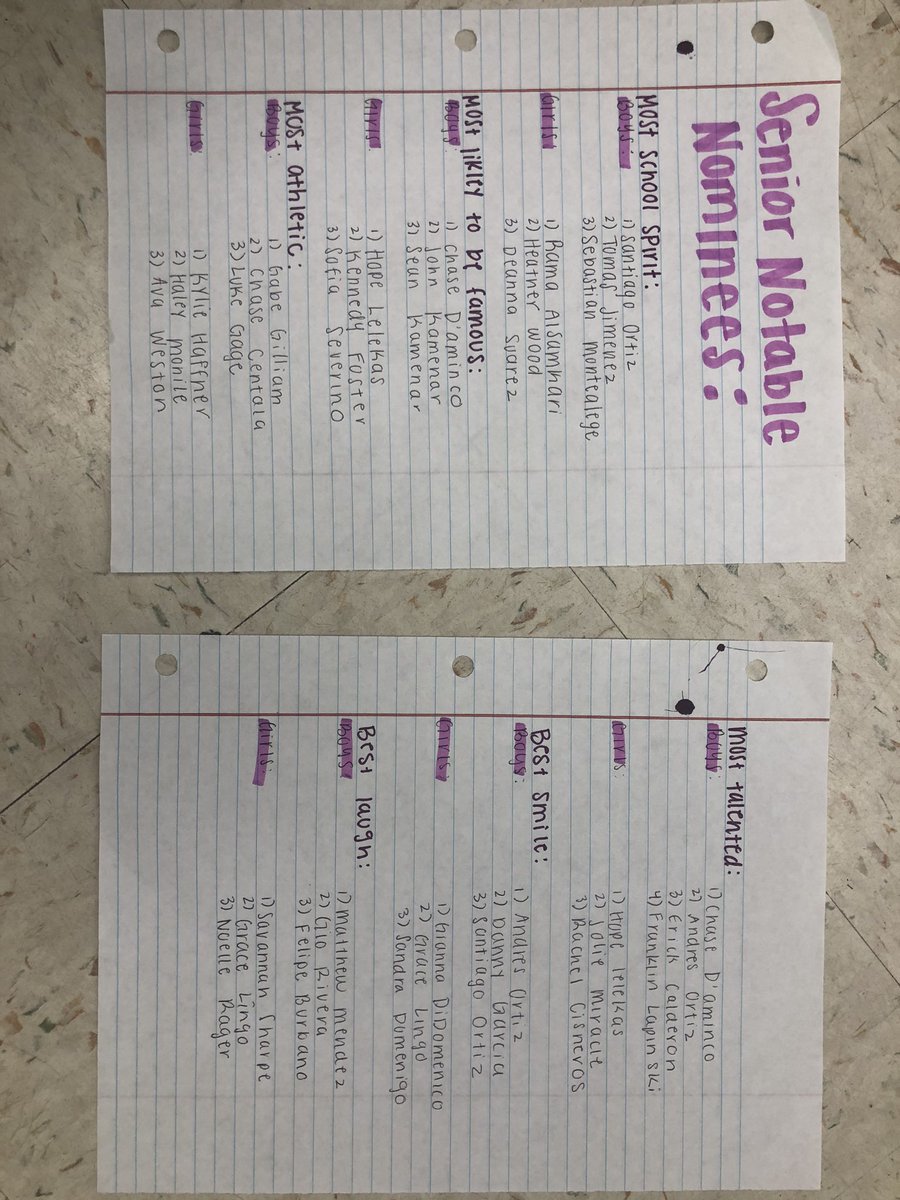 Senior Notable
Nominees:
Most school spirit:
Boys:
1) Santiago Ortiz
2) Tomas Jimenez
3) Sebastian montealege
Girls
1) Rama Alsamhari
2) Heather Wood
3) Deanna Suarez
Most likley to be famous:
Boys:
1) Chase D'aminco
2) John Kamenar
3) Sean Kamenar
Girls
1) Hope Lelekas
2) Kennedy Foster
3) Sofia Severino
Most athletic:
Boys:
1) Gabe Gilliam
2) Chase Centala
3) Luke Gage
Girls:
1) Kylie Haffner
2) Haley monile
3) Ava Weston
most talented:
Boys:
1) Chase D'aminco
2) Andres Ortiz
3) Erick Calderon
4) Franklin Lapinski
Girls:
1) Hope lelekas
2) Jolie Miracle
3) Rachel Cisneros
Best smile:
Boys:
1) Andres Ortiz
2) Danny Garcia
3) Santiago Ortiz
Girls:
1) Gianna DiDomenico
2) Grace Lingo
3) Sandra Domenigo
Best laugh:
Boys
1) Matthew mendez
2) Gio Rivera
3) Felipe Burbano
Girls:
1) Savannah Sharpe
2) Grace Lingo
3) Noelle Rager